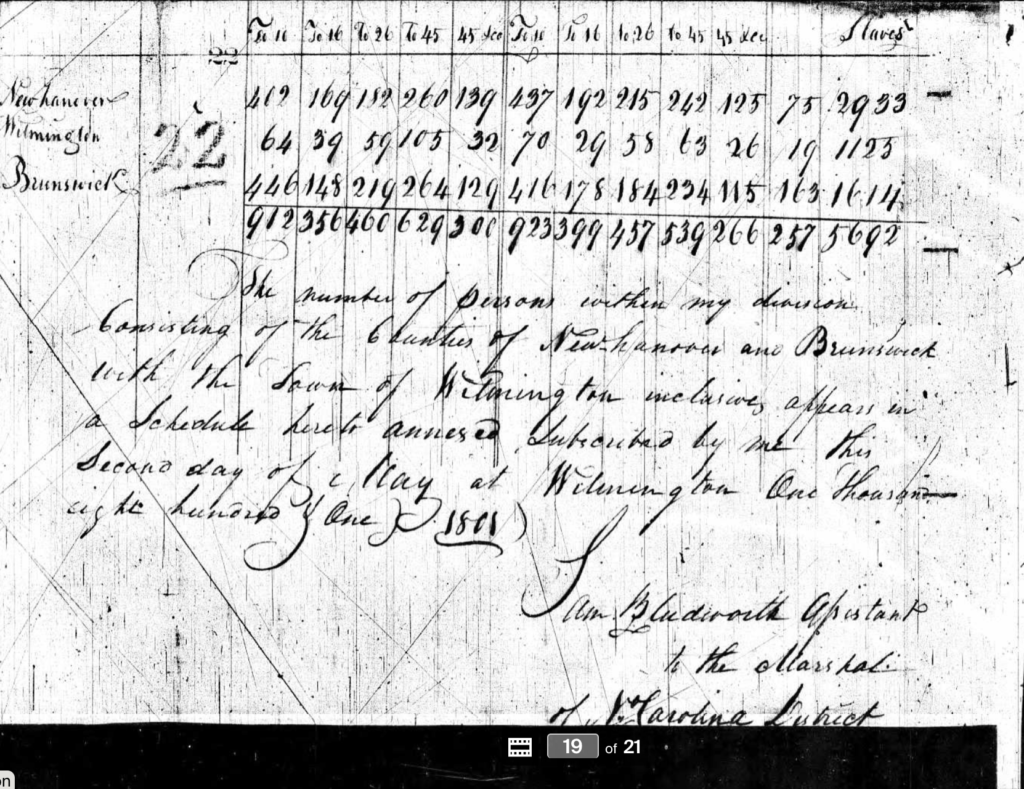 To 10 To 16 To 26 To 45 45 &co To 10 To 16 to 26 to 45 45 &co Slaves
22
Newhanover 402 169 182 260 139 437 192 215 242 125 75 2933
Wilmington 64 39 59 105 32 70 29 58 63 26 19 1125
22
Brunswick 446 148 219 264 129 416 178 184 234 115 163 1614
912 356 460 629 300 923 399 457 539 266 257 5692
The number of persons within my division
Consisting of the Counties of New-hanover and Brunswick
with the Town of Wilmington inclusive, appears in
a Schedule hereto annexed, Subscribed by me this
Second day of May at Wilmington One thousand
eight hundred & One 1801
Sam Bludworth Assistant
to the Marshal
of No Carolina District
19 of 21
on